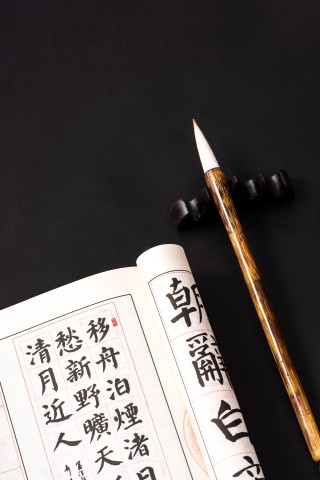 朝辭白
移舟泊煙渚日
愁新野曠天
清月近人